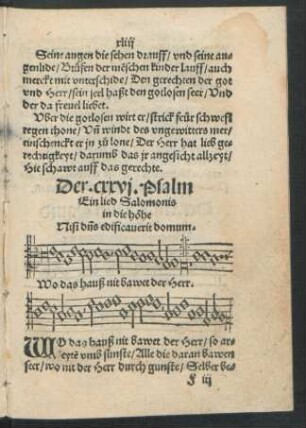 xliij
Seine augen die sehen drauff/ vnd seine au-
genlide/ Brüfen der mēschen kinder lauff/ auch
merckt mit vnterschide/ Den gerechten der got
vnd Herr/ sein seel haßt den gotlosen seer/ Vnd
der da freuel liebet.
Vber die gotlosen wirt er/ strick feür schwefl
regen thone/ Vñ winds des vngewitters mer/
einschenckt er jn zů lone/ Der Herr hat lieb ge-
rechtigkeyt/ darumb das jr angesicht allzeyt/
Hie schawt auff das gerechte.
Der .cxxvj. Psalm
Ein lied Salomonis
in die höhe
Nisi dñs edificauerit domum.
Wo das hauß nit bawet der Herr.
WO das hauß nit bawet der Herr/ so ar-
beyt vmb sunste/ Alle die daran bawen
seer/ wo nit der Herr durch gunste/ Selber be-
F iij